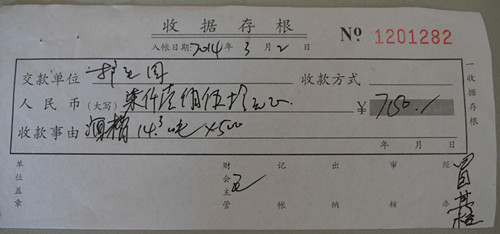 收据存根
入帐日期 2014年 3月 2日
№ 1201282
交款单位 收款方式
人民币(大写) 柒仟壹佰伍拾元正 ¥ 7150.1
收款事由 酒糟 14.3吨 ×500
年 月 日
单位盖章 财会主管 记帐 出纳 审核 经办
一收据存根